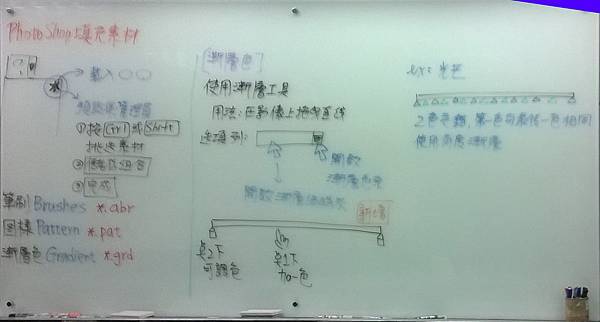 PhotoShop填充素材
載入○○
預設集管理員
①按Ctrl或Shift
挑選素材
②儲存組合
③完成
筆刷Brushes *.abr
圖樣Pattern *.pat
漸層色Gradient *.grd
漸層色
使用漸層工具
用法:在影像上拖曳直線
選項列:
開啟
漸層色票
開啟漸層編輯器
新增
點2下
可調色
點1下
加一色
ex: 光芒
使用角度漸層